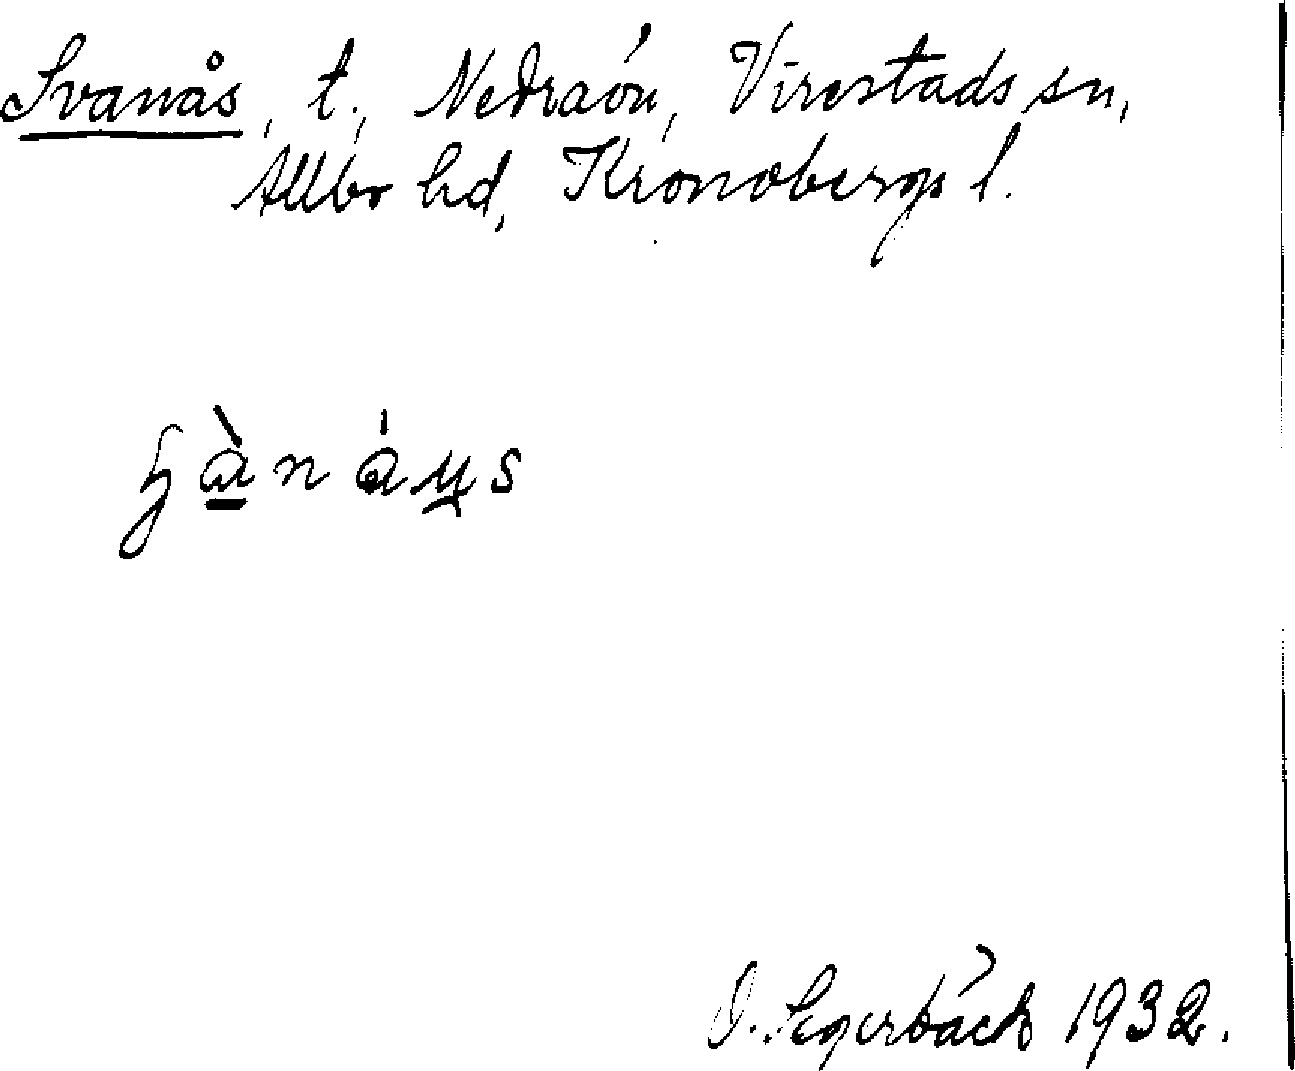 Svanås, t., Nedraön, Virestads sn,
Allbo hd, Kronobergs l.
Segerbäck 1932.